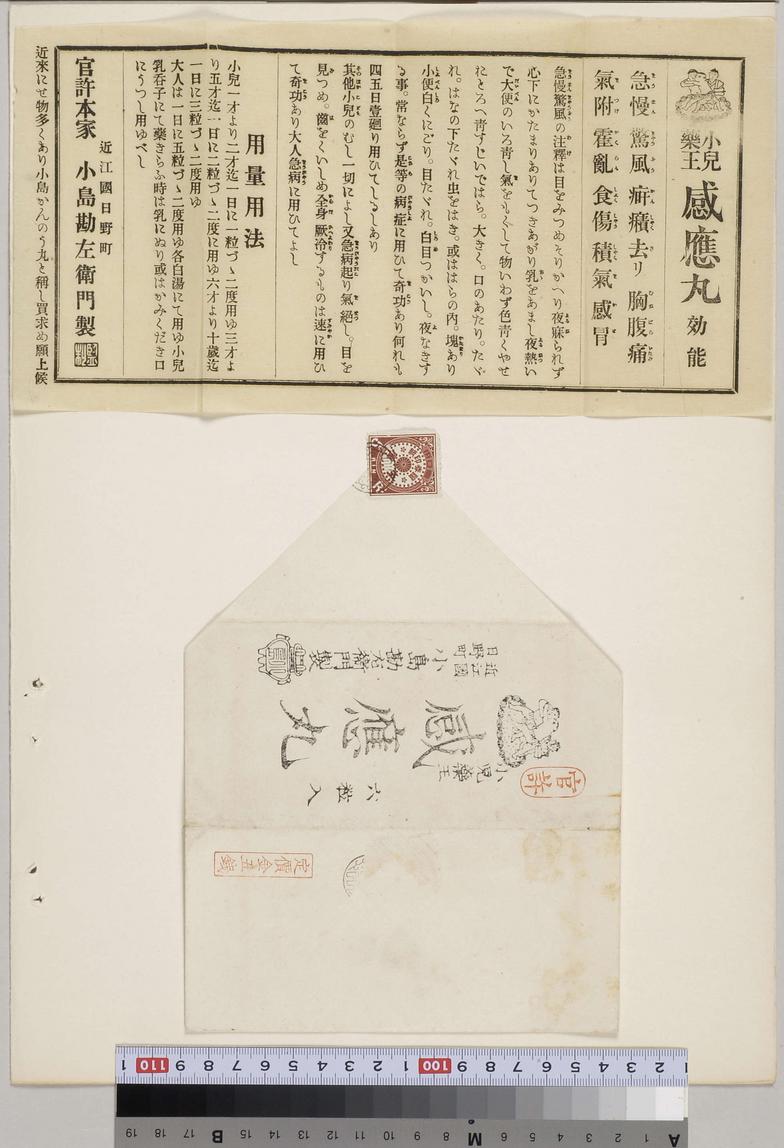 小兒
藥王
感應丸
効能
急慢驚風 疳癪去リ 胸腹痛
氣附 霍亂 食傷 積氣 感冒
急慢驚風の注釋は目をみつめそりかへり夜寐られず
心下にかたまりありてつきあがり乳をあまし夜熱い
で大便のいろ青し氣をもぐして物いわず色青くやせ
おとろへ青すじいではら。大きく。口のあたり。たゞ
れ。はなの下たゞれ虫をはき。或ははらの内。塊あり
小便白くにごり。目たゞれ。白目つかいし。夜なきす
る事。常ならず是等の病症に用ひて奇功あり何れも
四五日壹廻り用ひてしるしあり
其他小兒のむし一切によし又急病起り氣絕し。目を
見つめ。齒をくいしめ全身厥冷するものは速に用ひ
て奇功あり大人急病に用ひてよし
用量用法
小兒一才より二才迄一日に一粒づゝ二度用ゆ三才よ
り五才迄一日に二粒づゝ二度に用ゆ六才より十歲迄
一日に三粒づゝ二度用ゆ
大人は一日に五粒づゝ二度用ゆ各白湯にて用ゆ小兒
乳呑子にて藥きらふ時は乳にぬり或はかみくだき口
にうつし用ゆべし
近江國日野町
官許本家 小島勘左衛門製
近來にせ物多くあり小島かんのう丸と稱し買求め願上候
官許
小児藥王
感應丸
六粒入
近江國
日野町
小島勘左衛門製
定價金五錢